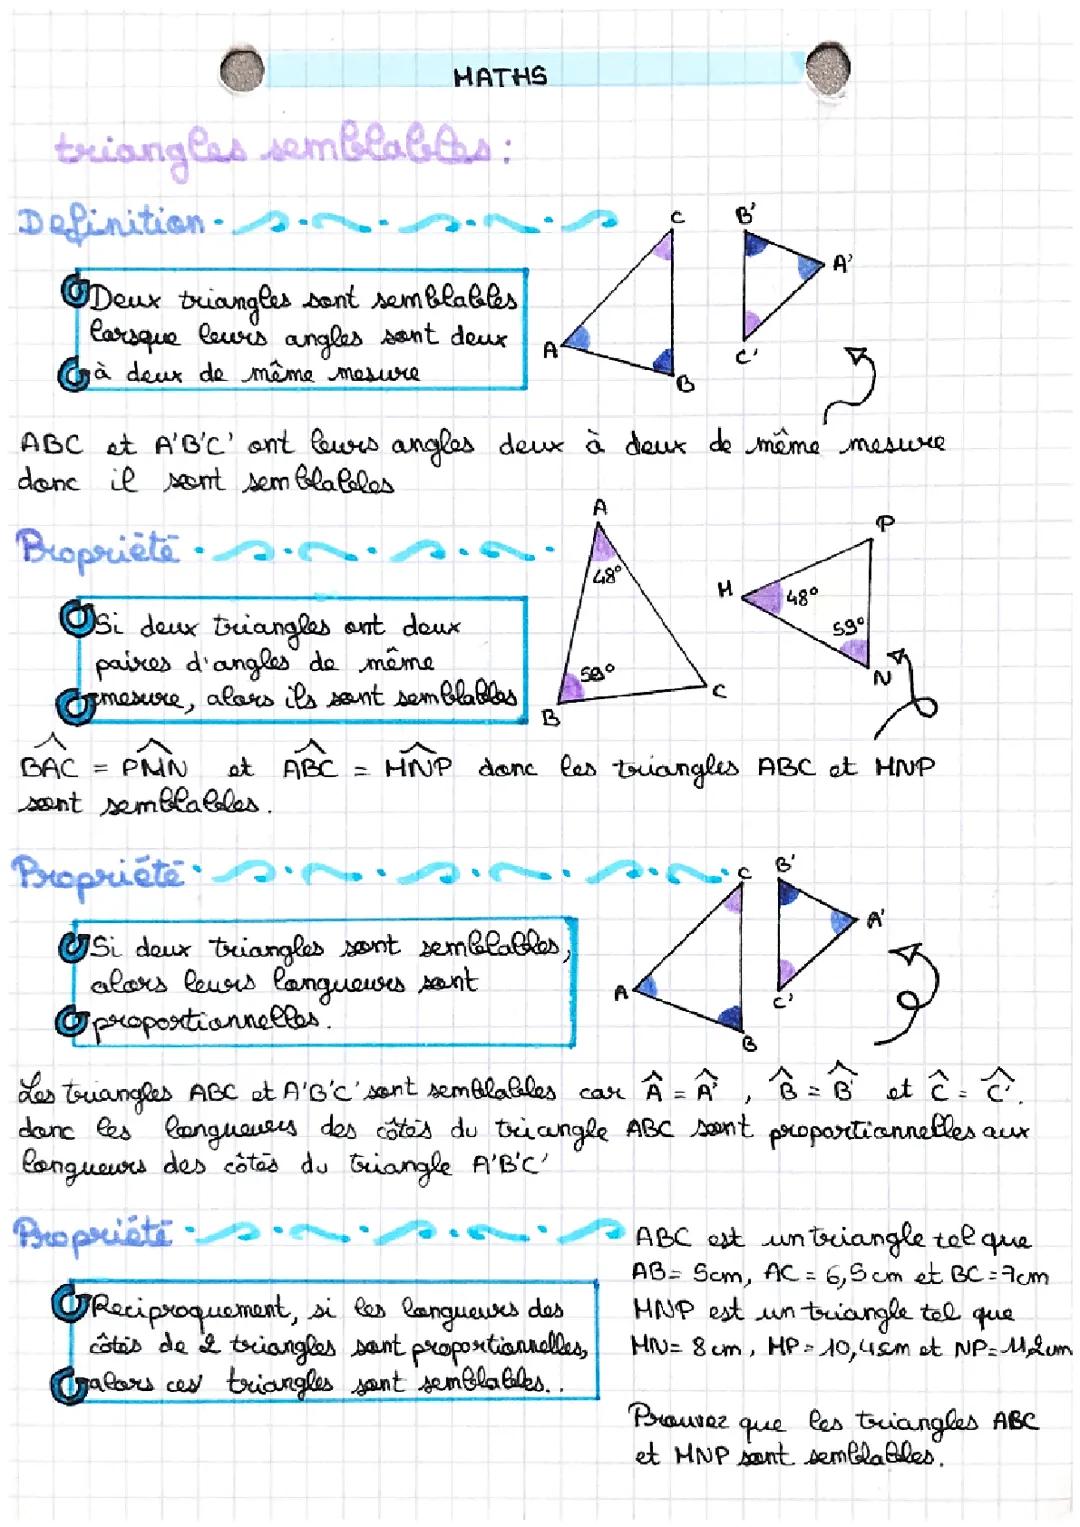 MATHS
triangles semblables :
Définition
Deux triangles sont semblables
lorsque leurs angles sont deux
à deux de même mesure
C
B'
A'
A
C'
B
ABC et A'B'C' ont leurs angles deux à deux de même mesure
donc il sont semblables
Propriété
A
P
48°
M
48°
59°
Si deux triangles ont deux
paires d'angles de même
mesure, alors ils sont semblables
59°
N
C
B
BAC = PMN et ABC = MNP donc les triangles ABC et MNP
sont semblables.
Propriété
C
B'
A'
Si deux triangles sont semblables,
alors leurs longueurs sont
proportionnelles.
A
C'
B
Les triangles ABC et A'B'C' sont semblables car Â = Â' , B̂ = B̂' et Ĉ = Ĉ'.
donc les longueuers des côtés du triangle ABC sont proportionnelles aux
longueurs des côtés du triangle A'B'C'
Propriété
Reciproquement, si les longueurs des
côtés de 2 triangles sont proportionnelles,
alors ces triangles sont semblables..
ABC est un triangle tel que
AB= 5cm, AC = 6,5cm et BC=7cm
MNP est un triangle tel que
MN= 8cm, MP= 10,4cm et NP=11,2cm
Prouvez que les triangles ABC
et MNP sont semblables.